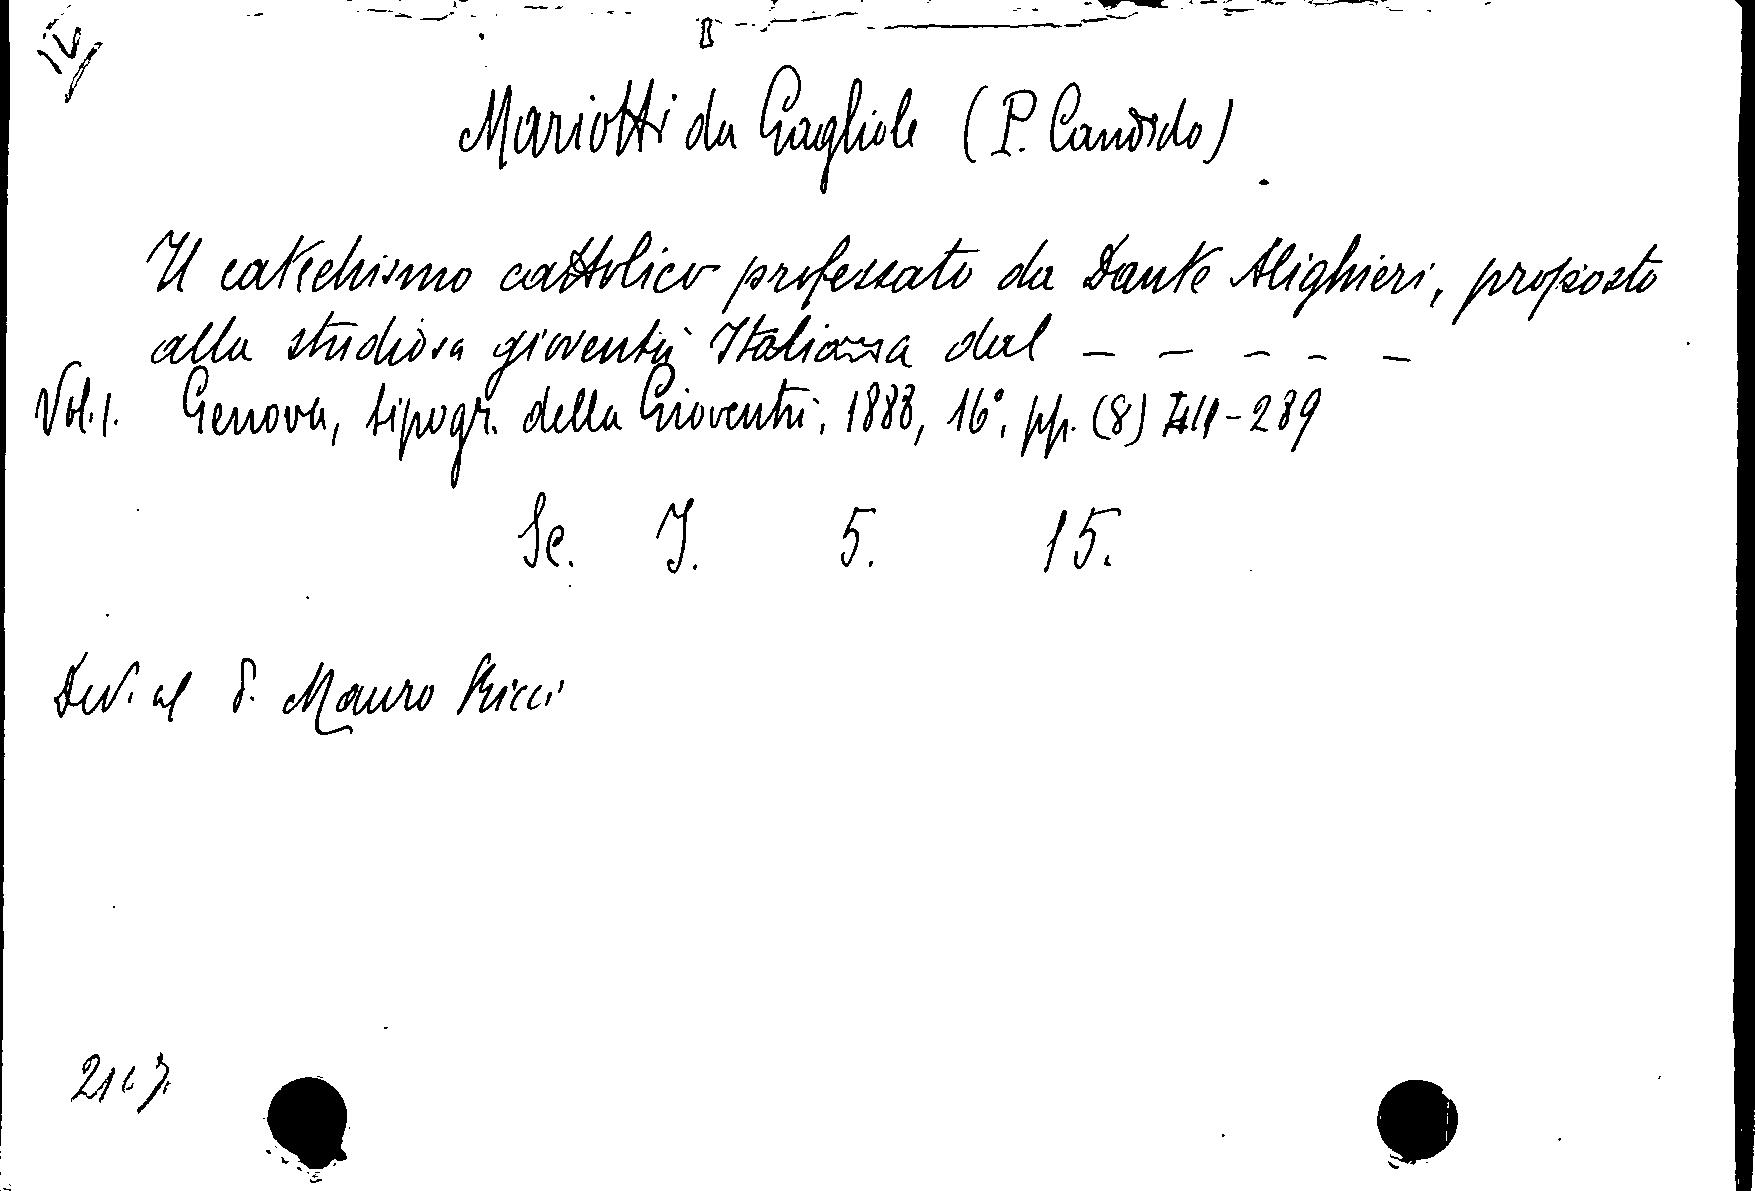 Mariotti da Gagliole (P. Candido)
Il catechismo cattolico professato da Dante Alighieri, proposto
alla studiosa gioventù Italiana dal – – – – –
Vol. 1. Genova, tipogr. della Gioventù, 1888, 16°, pp. (8) -289
Sc. I. 5. 15.
Ded. al P. Mauro Ricci